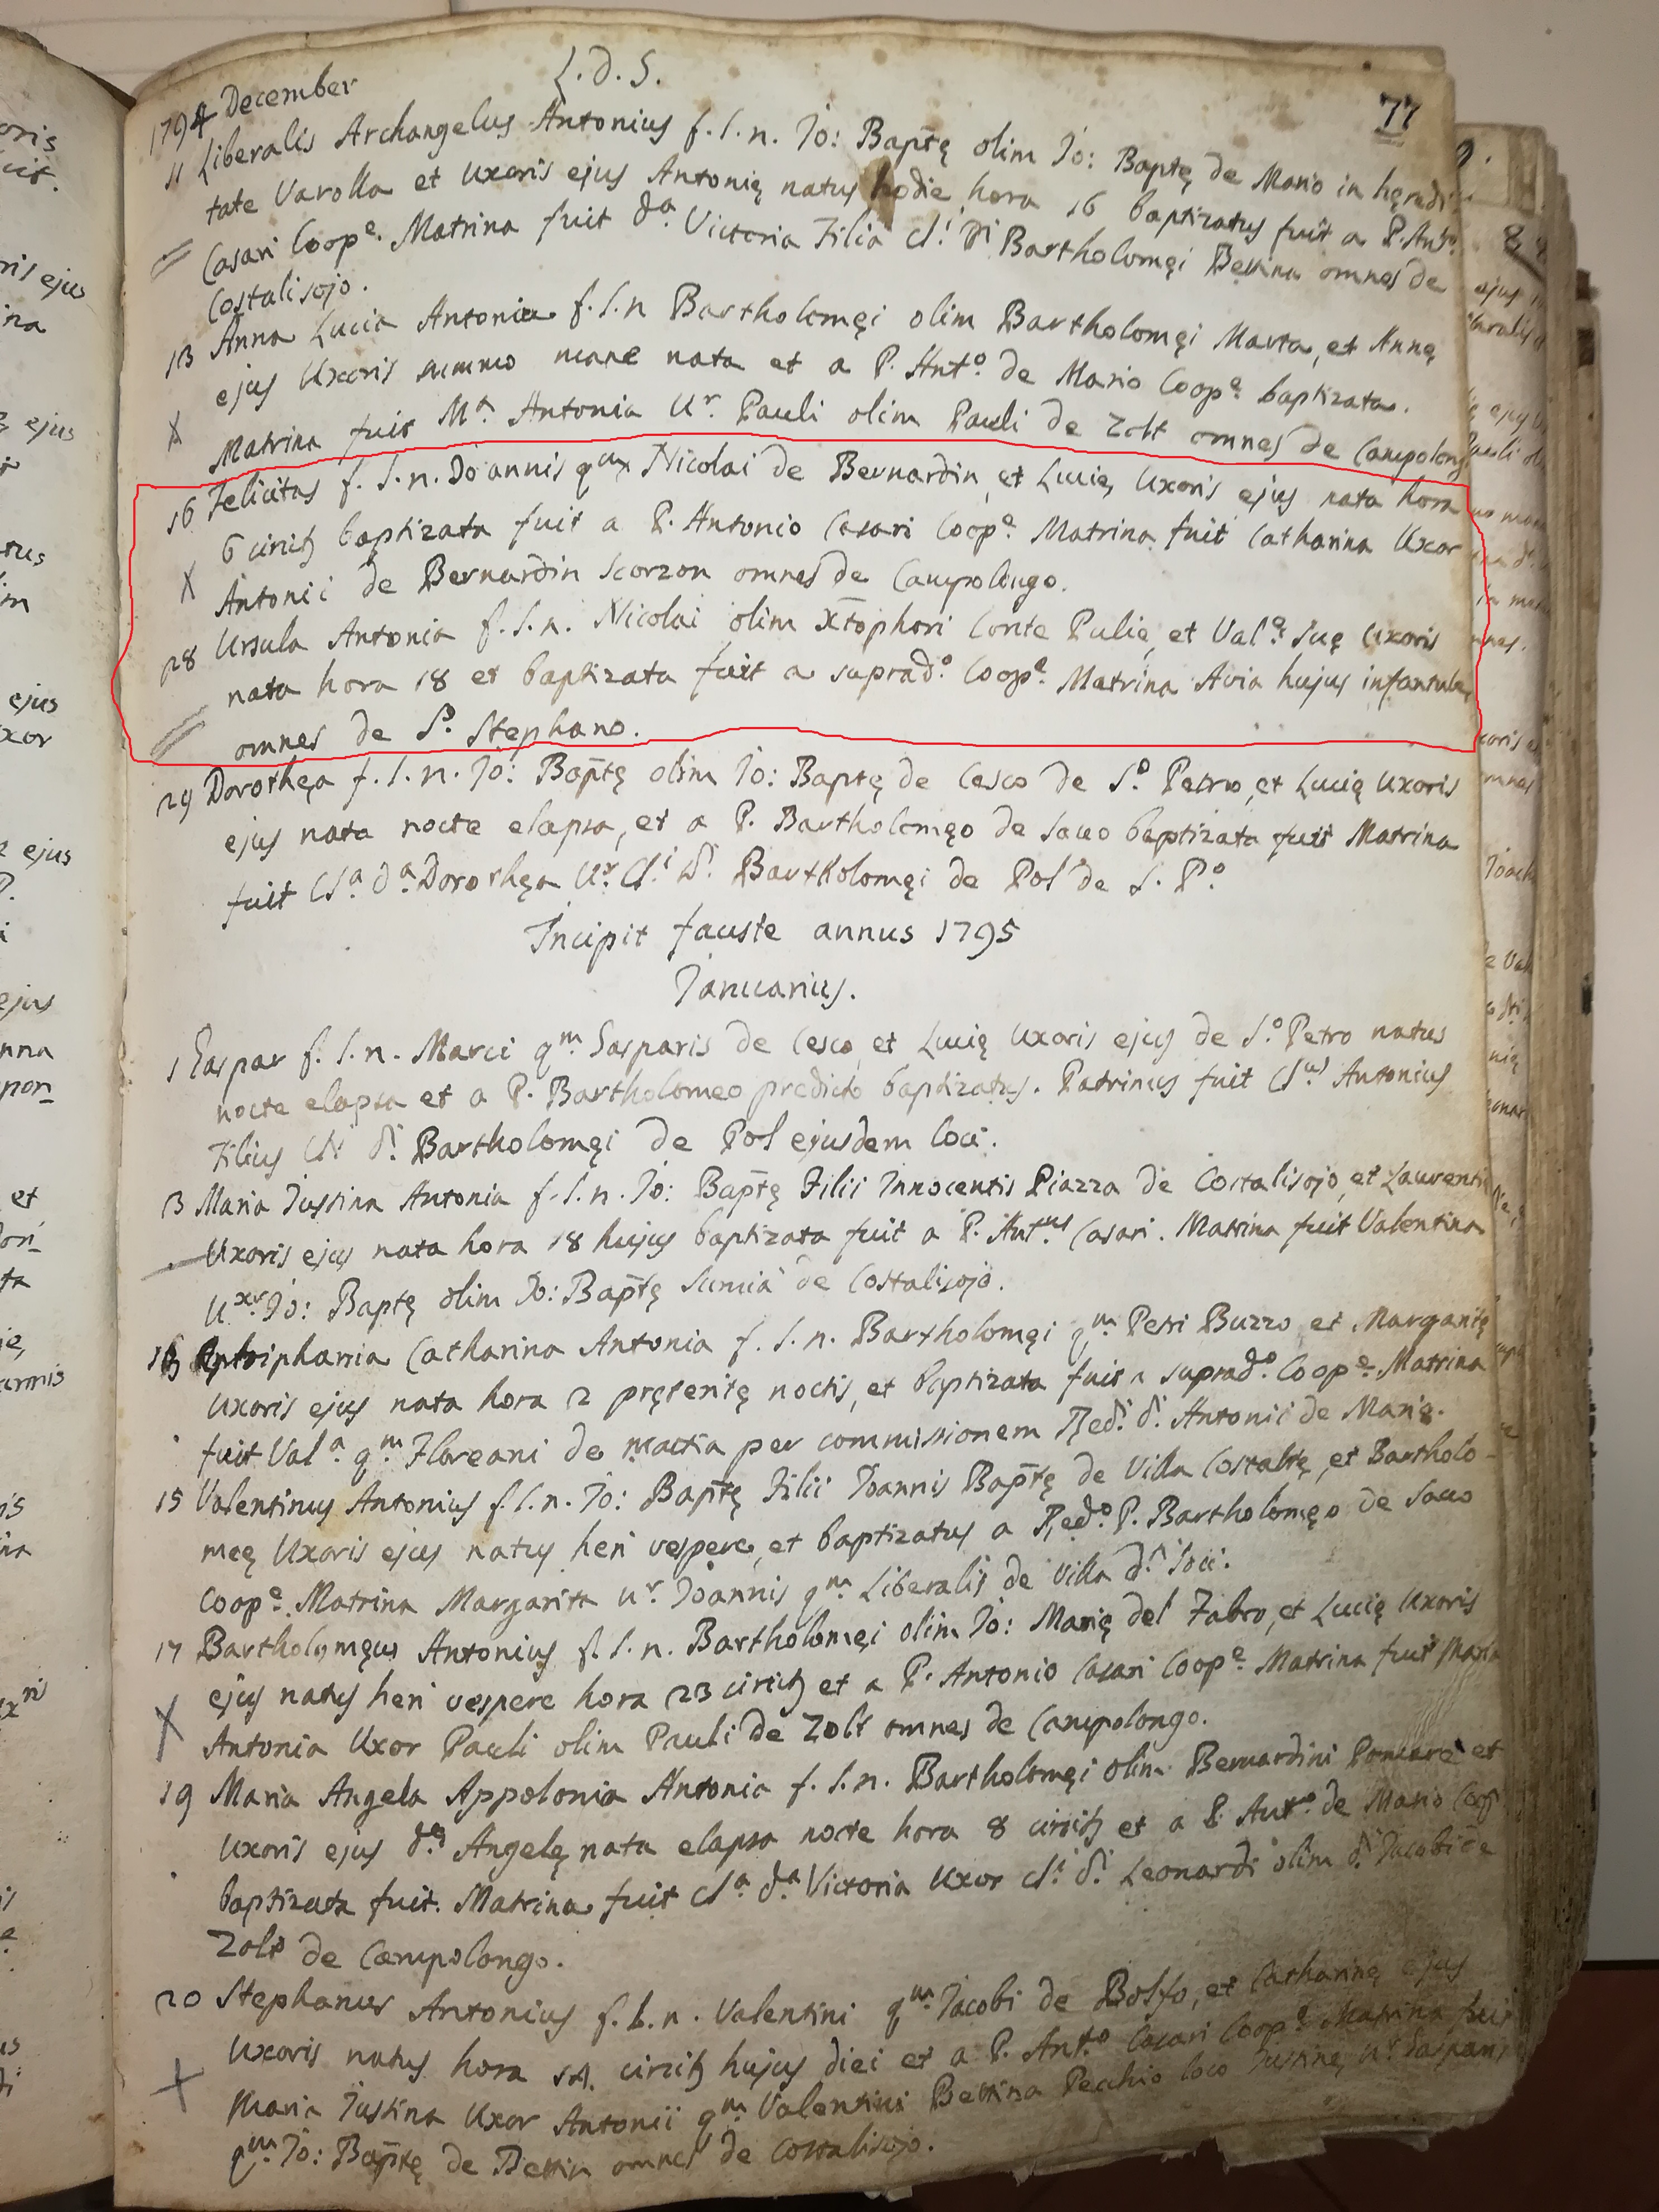 L.D.S.
77
1794 December
11 Liberalis Archangelus Antonius f. l. n. Jo: Baptę olim Jo: Baptę de Mario in hęredi
tate Varolla et Uxoris ejus Antonię natus hodie hora 16 baptizatus fuit a P. Antº
Casari Coopᵉ. Matrina fuit dᵃ Victoria Filia Clⁱ Dⁱ Bartholomęi Bettina omnes de
Costalisojo.
13 Anna Lucia Antonia f. l. n Bartholomęi olim Bartholomęi Marta, et Annę
ejus Uxoris summo mane nata et a P. Antº. de Mario Coopᵉ baptizata.
X Matrina fuit Mᵃ Antonia Uʳ. Pauli olim Pauli de Zolt omnes de Campolong
16 Felicitas f. l. n. Joannis qᵐ Nicolai de Bernardin, et Lucię Uxoris ejus nata hora
6 circit baptizata fuit a P. Antonio Casari Coopᵉ. Matrina fuit Catharina Uxor
X Antonii de Bernardin Scorzon omnes de Campolongo.
28 Ursula Antonia f. l. n. Nicolai olim Xtophori Conte Pulie, et Valᵉ. Suę Uxoris
nata hora 18 et baptizata fuit a supradº. Coopᵉ. Matrina Avia hujus infantulę
omnes de Sº. Stephano.
29 Dorothęa f. l. n. Jo: Baptę olim Jo: Baptę de Cesco de Sº. Petro, et Lucię Uxoris
ejus nata nocte elapsa, et a P. Bartholomęo de Sacco baptizata fuit Matrina
fuit Clᵃ dᵃ. Dorothęa Uʳ. Clⁱ Dⁱ. Bartholomęi de Pol de S. Pº
Incipit fauste annus 1795
Januarius.
1 Gaspar f. l. n. Marci qᵐ Gasparis de Cesco, et Lucię Uxoris ejus de Sº. Petro natus
nocte elapsa et a P. Bartholomeo predicto baptizatus. Patrinus fuit Clᵘˢ Antonius
Filius Clⁱ dⁱ. Bartholomęi de Pol ejusdem loci.
13 Maria Justina Antonia f. l. n. Jo: Baptę Filii Innocentis Piazza de Costalisojo, et Laurenti
Uxoris ejus nata hora 18 hujus baptizata fuit a P. Antᵘˢ Casari. Matrina fuit Valentina
Uˣʳ Jo: Baptę olim Jo: Baptę de Costalisojo.
Catharina Antonia f. l. n. Bartholomęi qᵐ Petri Buzzo, et Margaritę
Uxoris ejus nata hora 2 pręteritę noctis, et baptizata fuit a supradº. Coopᵉ. Matrina
fuit Valᵃ. qᵐ. Floreani de per commissionem Rędⁱ. dⁱ. Antonii de Mario.
15 Valentinus Antonius f. l. n. Jo: Baptę Filii Joannis Baptę de Villa Costaltę, et Bartholo-
meę Uxoris ejus natus heri vespere, et baptizatus a Rędº. P. Bartholomęo de Sacco
Coopᵉ. Matrina Margarita Uʳ Joannis qᵐ. Liberalis de Villa dⁱ loci.
17 Bartholomęus Antonius f. l. n. Bartholomęi olim Jo: Marię del Fabro, et Lucię Uxoris
ejus natus heri vespere hora 23 circit et a P. Antonio Casari Coopᵉ. Matrina fuit Maria
X Antonia Uxor Pauli olim Pauli de Zolt omnes de Campolongo.
19 Maria Angela Appolonia Antonia f. l. n. Bartholomęi olim Bernardini Pomarè et
Uxoris ejus dᵉ Angelę nata elapsa nocte hora 8 circit et a P. Antº. de Mario Coopᵉ
baptizata fuit. Matrina fuit Clᵃ dᵃ Victoria Uxor Clⁱ dⁱ. Leonardi olim dⁱ Jacobi de
Zolt de Campolongo.
20 Stephanus Antonius f. l. n. Valentini qᵐ Jacobi de Bolfo, et Catharinę ejus
Uxoris natus hora circit hujus diei et a P. Antº Casari Coopᵉ. Matrina fuit
X Maria Justina Uxor Antonii qᵐ Valentini Bettina Pecchio loco Justinę Uʳ Gasparis
qᵐ Jo: Baptę de Bettin omnes de Costalisojo.